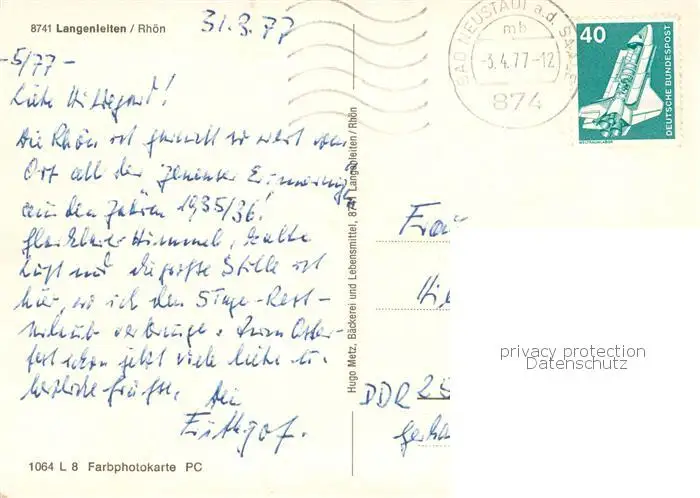 8741 Langenleiten / Rhön
31.3.77
-5/77-
Liebe Hildegard!
Die Rhön ist
Ort all der Jenenser
aus den Jahren 1935/36!
Himmel, kalte
Luft und die große Stille ist
hier, wo ich den 5 Tage-Rest-
urlaub verbringe. Zum Oster-
fest schon jetzt viele liebe u.
herzliche Grüße.
Dein
1064 L 8 Farbphotokarte PC
Hugo Metz, Bäckerei und Lebensmittel, 8741 Langenleiten / Rhön
BAD NEUSTADT a.d. SAALE
mb
-3.4.77-12
874
40
DEUTSCHE BUNDESPOST
WELTRAUMLABOR
Frau
DDR 25
privacy protection
Datenschutz